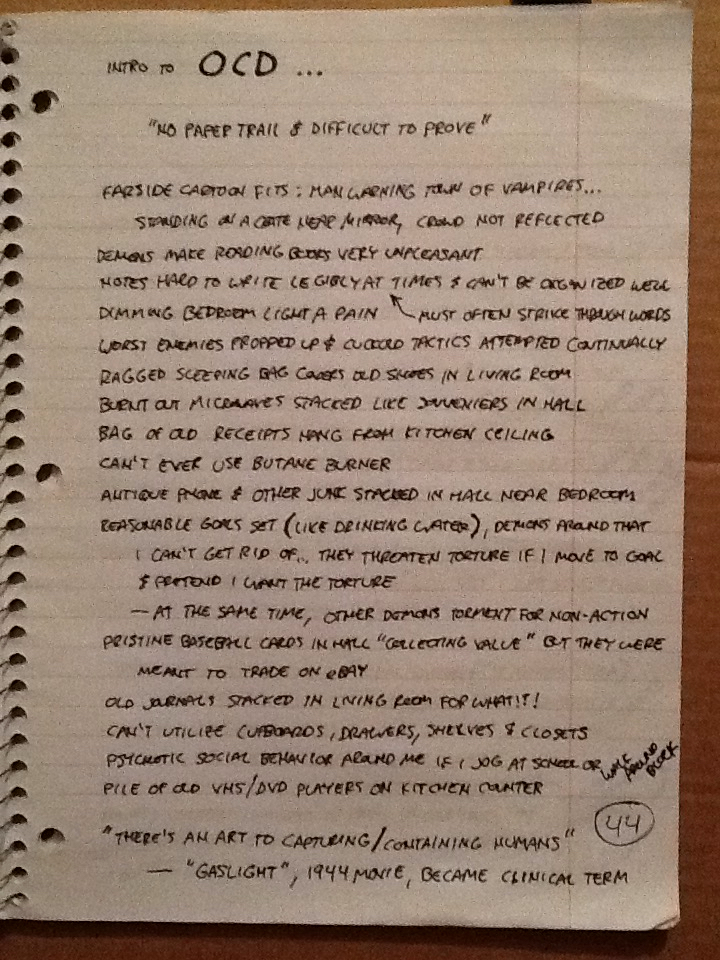 INTRO TO OCD ...
"NO PAPER TRAIL & DIFFICULT TO PROVE"
FARSIDE CARTOON FITS: MAN WARNING TOWN OF VAMPIRES...
STANDING ON A CRATE NEAR MIRROR, CROWD NOT REFLECTED
DEMONS MAKE READING BOOKS VERY UNPLEASANT
NOTES HARD TO WRITE LEGIBLY AT TIMES & CAN'T BE ORGANIZED WELL
DIMMING BEDROOM LIGHT A PAIN MUST OFTEN STRIKE THROUGH WORDS
WORST ENEMIES PROPPED UP & CUCKOLD TACTICS ATTEMPTED CONTINUALLY
RAGGED SLEEPING BAG COVERS OLD SHOES IN LIVING ROOM
BURNT OUT MICROWAVES STACKED LIKE SOUVENIERS IN HALL
BAG OF OLD RECEIPTS HANG FROM KITCHEN CEILING
CAN'T EVER USE BUTANE BURNER
ANTIQUE PHONE & OTHER JUNK STACKED IN HALL NEAR BEDROOM
REASONABLE GOALS SET (LIKE DRINKING WATER), DEMONS AROUND THAT
I CAN'T GET RID OF... THEY THREATEN TORTURE IF I MOVE TO GOAL
& PRETEND I WANT THE TORTURE
— AT THE SAME TIME, OTHER DEMONS TORMENT FOR NON-ACTION
PRISTINE BASEBALL CARDS IN HALL "COLLECTING VALUE" BUT THEY WERE
MEANT TO TRADE ON eBAY
OLD JOURNALS STACKED IN LIVING ROOM FOR WHAT!?!
CAN'T UTILIZE CUPBOARDS, DRAWERS, SHELVES & CLOSETS
PSYCHOTIC SOCIAL BEHAVIOR AROUND ME IF I JOG AT SCHOOL OR WALK AROUND BLOCK
PILE OF OLD VHS/DVD PLAYERS ON KITCHEN COUNTER
44
"THERE'S AN ART TO CAPTURING/CONTAINING HUMANS"
— "GASLIGHT", 1944 MOVIE, BECAME CLINICAL TERM